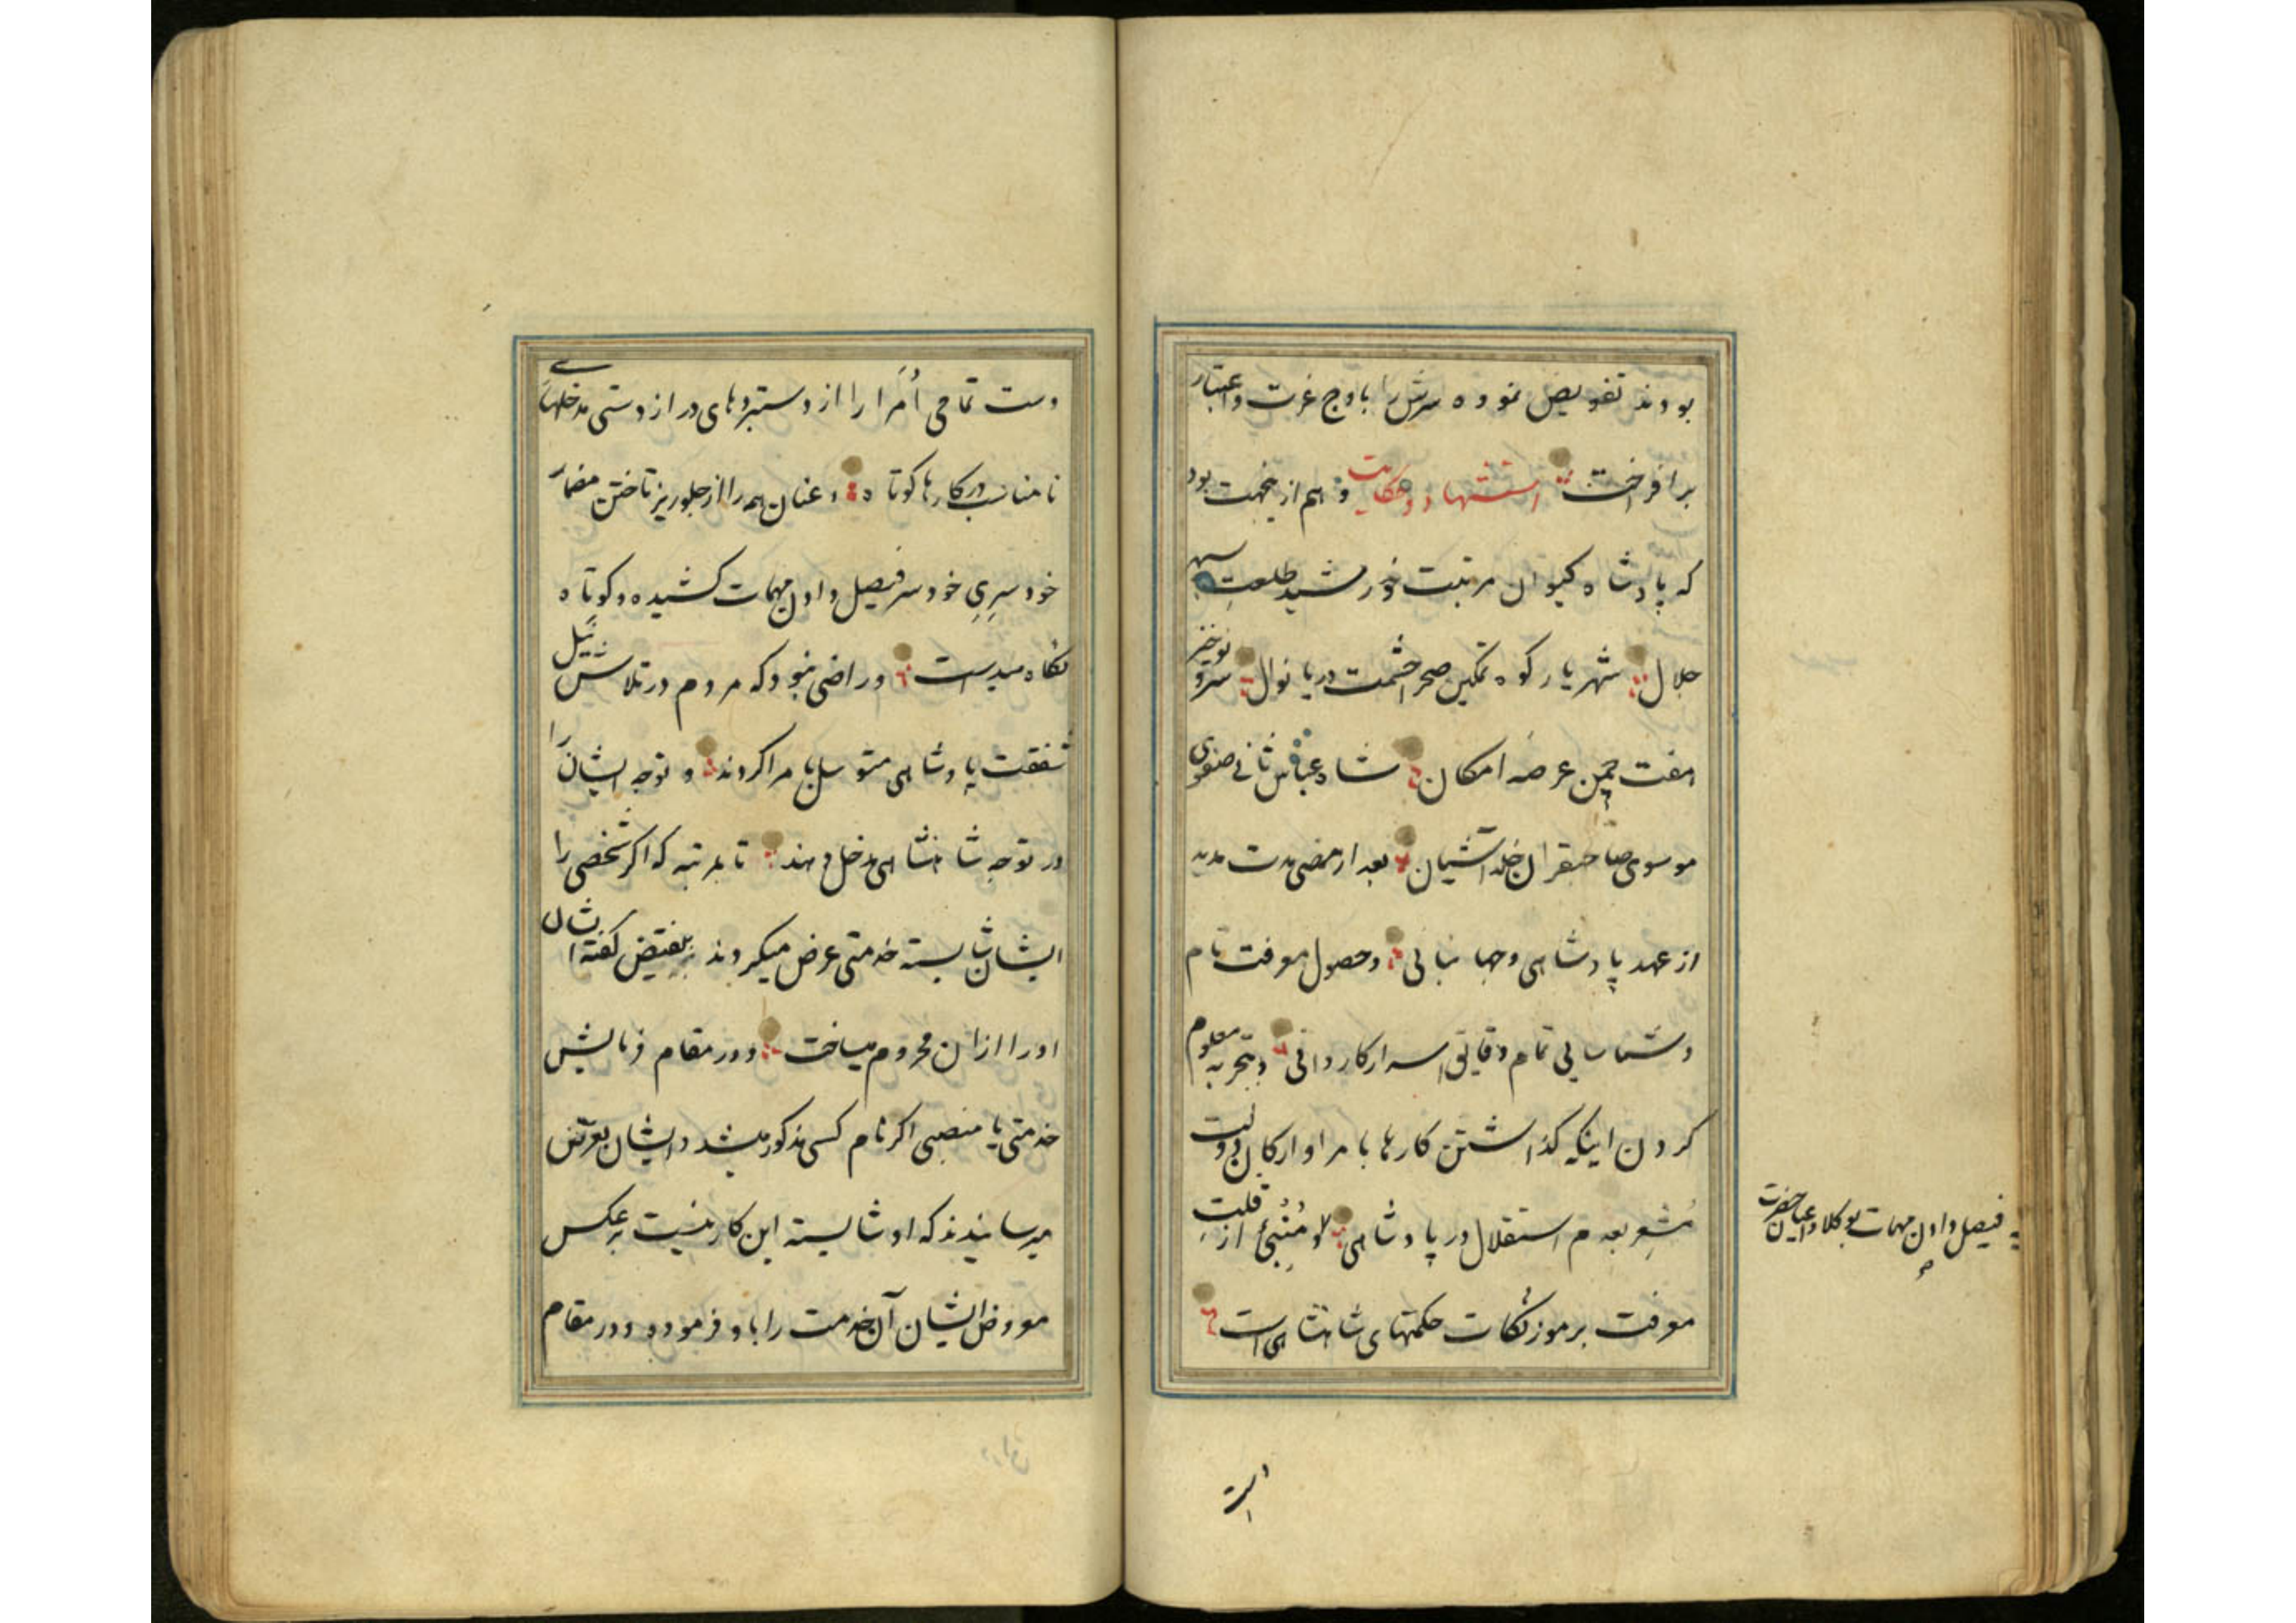 بودند تفویض نموده سرش را باوج عزت و اعتبار
برافراخت استشهاد و حکایت و هم ازینجهت بود
که پادشاه کیوان مرتبت خورشید طلعت سپهر
جلال شهریار کوه تمکین صحرا حشمت دریا نوال سرو نوخیز
چمن عرصه امکان شاه عباس ثانی صفوی
موسوی صاحبقران خلدآشیان بعد از مضی مدت مدید
از عهد پادشاهی و جهانبانی و حصول معرفت تام
و شناسایی تمام دقایق اسرار کاردانی و بتجربه معلوم
کردن اینکه گذاشتن کارها بامرا و ارکان دولت
مُشعِر بعدم استقلال در پادشاهی و مُنْبِئ از قلتِ
معرفت برموز نکات حکمتهای شاهنشاهی است
فیصل دادن مهمات بوکلا و اعیان حضرت
صح
دست
دست تمامی اُمَرا را از دستبردهای درازدستی مدخلهای
نامناسب در کارها کوتاه و عنان همه را از جلوریز تاختن مضمار
خودسریِ خودسر فیصل دادن مهمات کشیده و کوتاه
نگاه میداشت و راضی نبود که مردم در تلاش نیل
شفقت پادشاهی متوسل بامرا گردند و توجه ایشان را
در توجه شاهنشاهی مدخل دهند تا بمرتبه که اگر شخصی را
ایشان شایسته خدمتی عرض میکردند بنقیض گفته ایشان
او را از آن محروم میساخت و در مقام فرمایش
خدمتی یا منصبی اگر نام کسی مذکور میشد و ایشان بعرض
میرسانیدند که او شایسته این کار نیست بر عکس
معروض ایشان آن خدمت را باو فرموده و در مقام